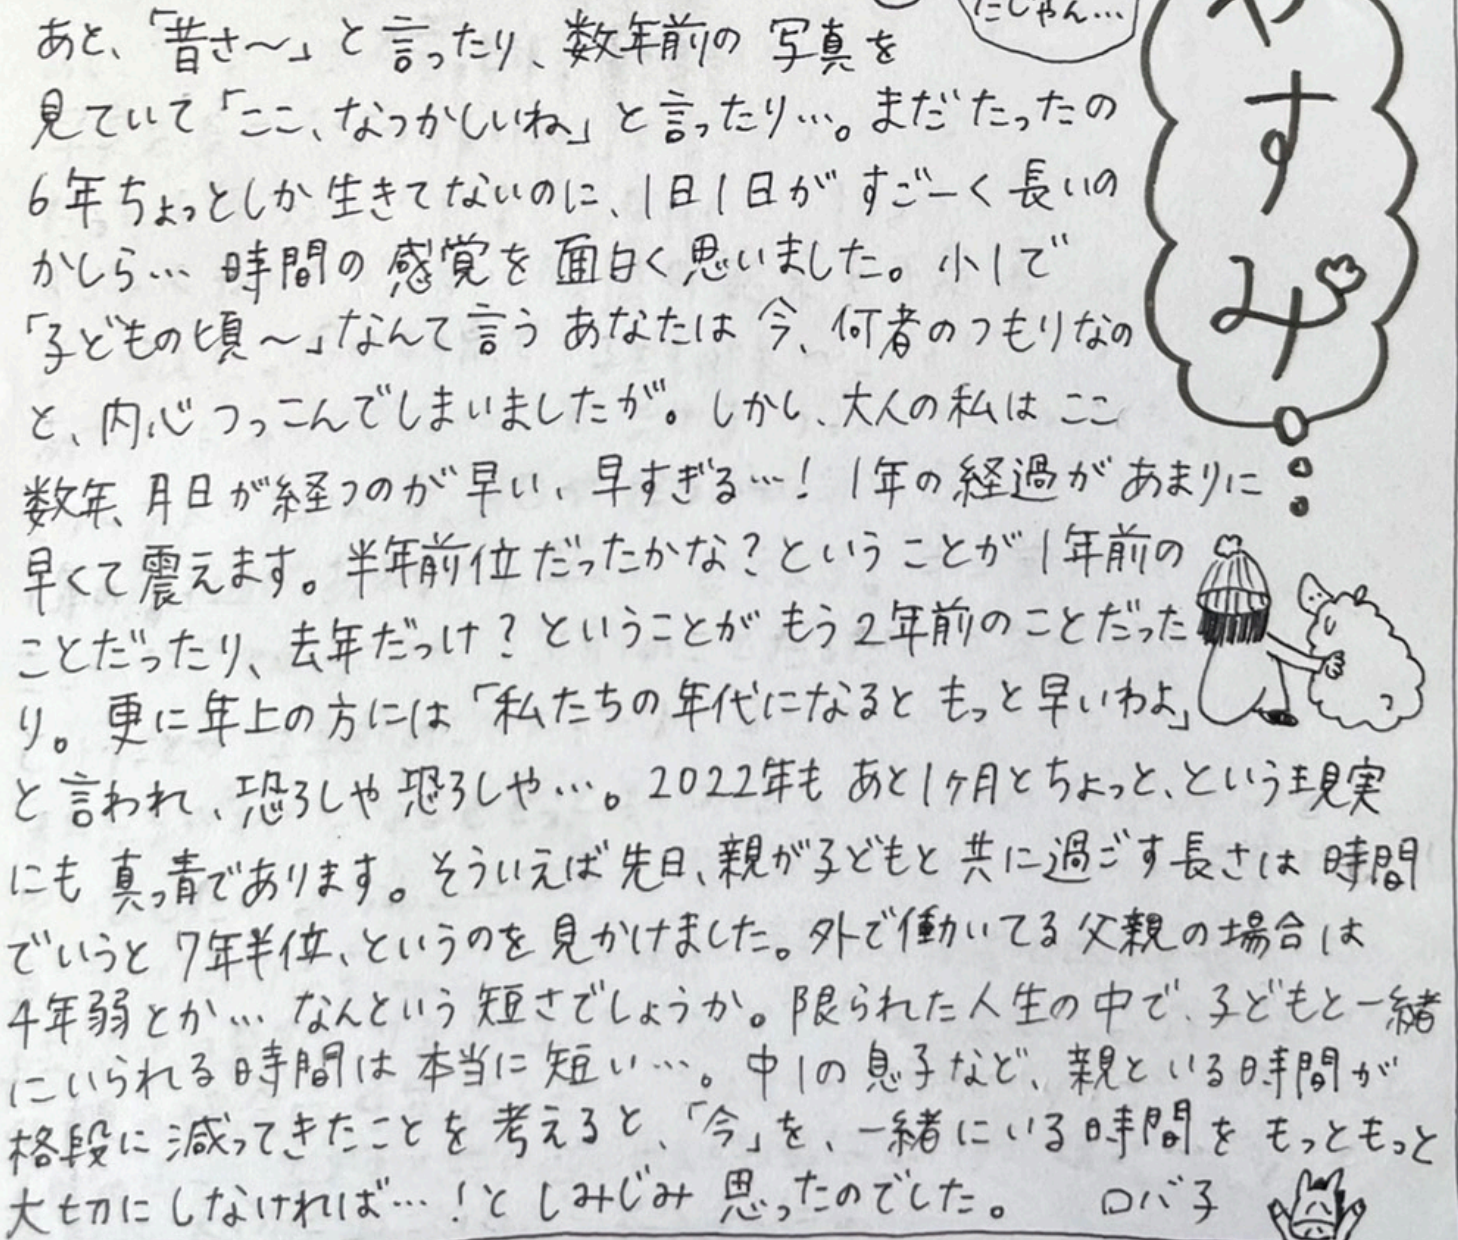 にじゃん…
やすみ
あと、「昔さ〜」と言ったり、数年前の写真を
見ていて「ここ、なつかしいね」と言ったり…。まだたったの
6年ちょっとしか生きてないのに、1日1日がすごーく長いの
かしら… 時間の感覚を面白く思いました。小1で
「子どもの頃〜」なんて言うあなたは今、何者のつもりなの
と、内心つっこんでしまいましたが。しかし、大人の私はここ
数年、月日が経つのが早い、早すぎる…！1年の経過があまりに
早くて震えます。半年前位だったかな？ということが1年前の
ことだったり、去年だっけ？ということがもう2年前のことだった
り。更に年上の方には「私たちの年代になるともっと早いわよ」
と言われ、恐ろしや恐ろしや…。2022年もあと1ヶ月とちょっと、という現実
にも真っ青であります。そういえば先日、親が子どもと共に過ごす長さは時間
でいうと7年半位、というのを見かけました。外で働いてる父親の場合は
4年弱とか… なんという短さでしょうか。限られた人生の中で、子どもと一緒
にいられる時間は本当に短い…。中1の息子など、親といる時間が
格段に減ってきたことを考えると、「今」を、一緒にいる時間をもっともっと
大切にしなければ…！としみじみ思ったのでした。 ロバ子